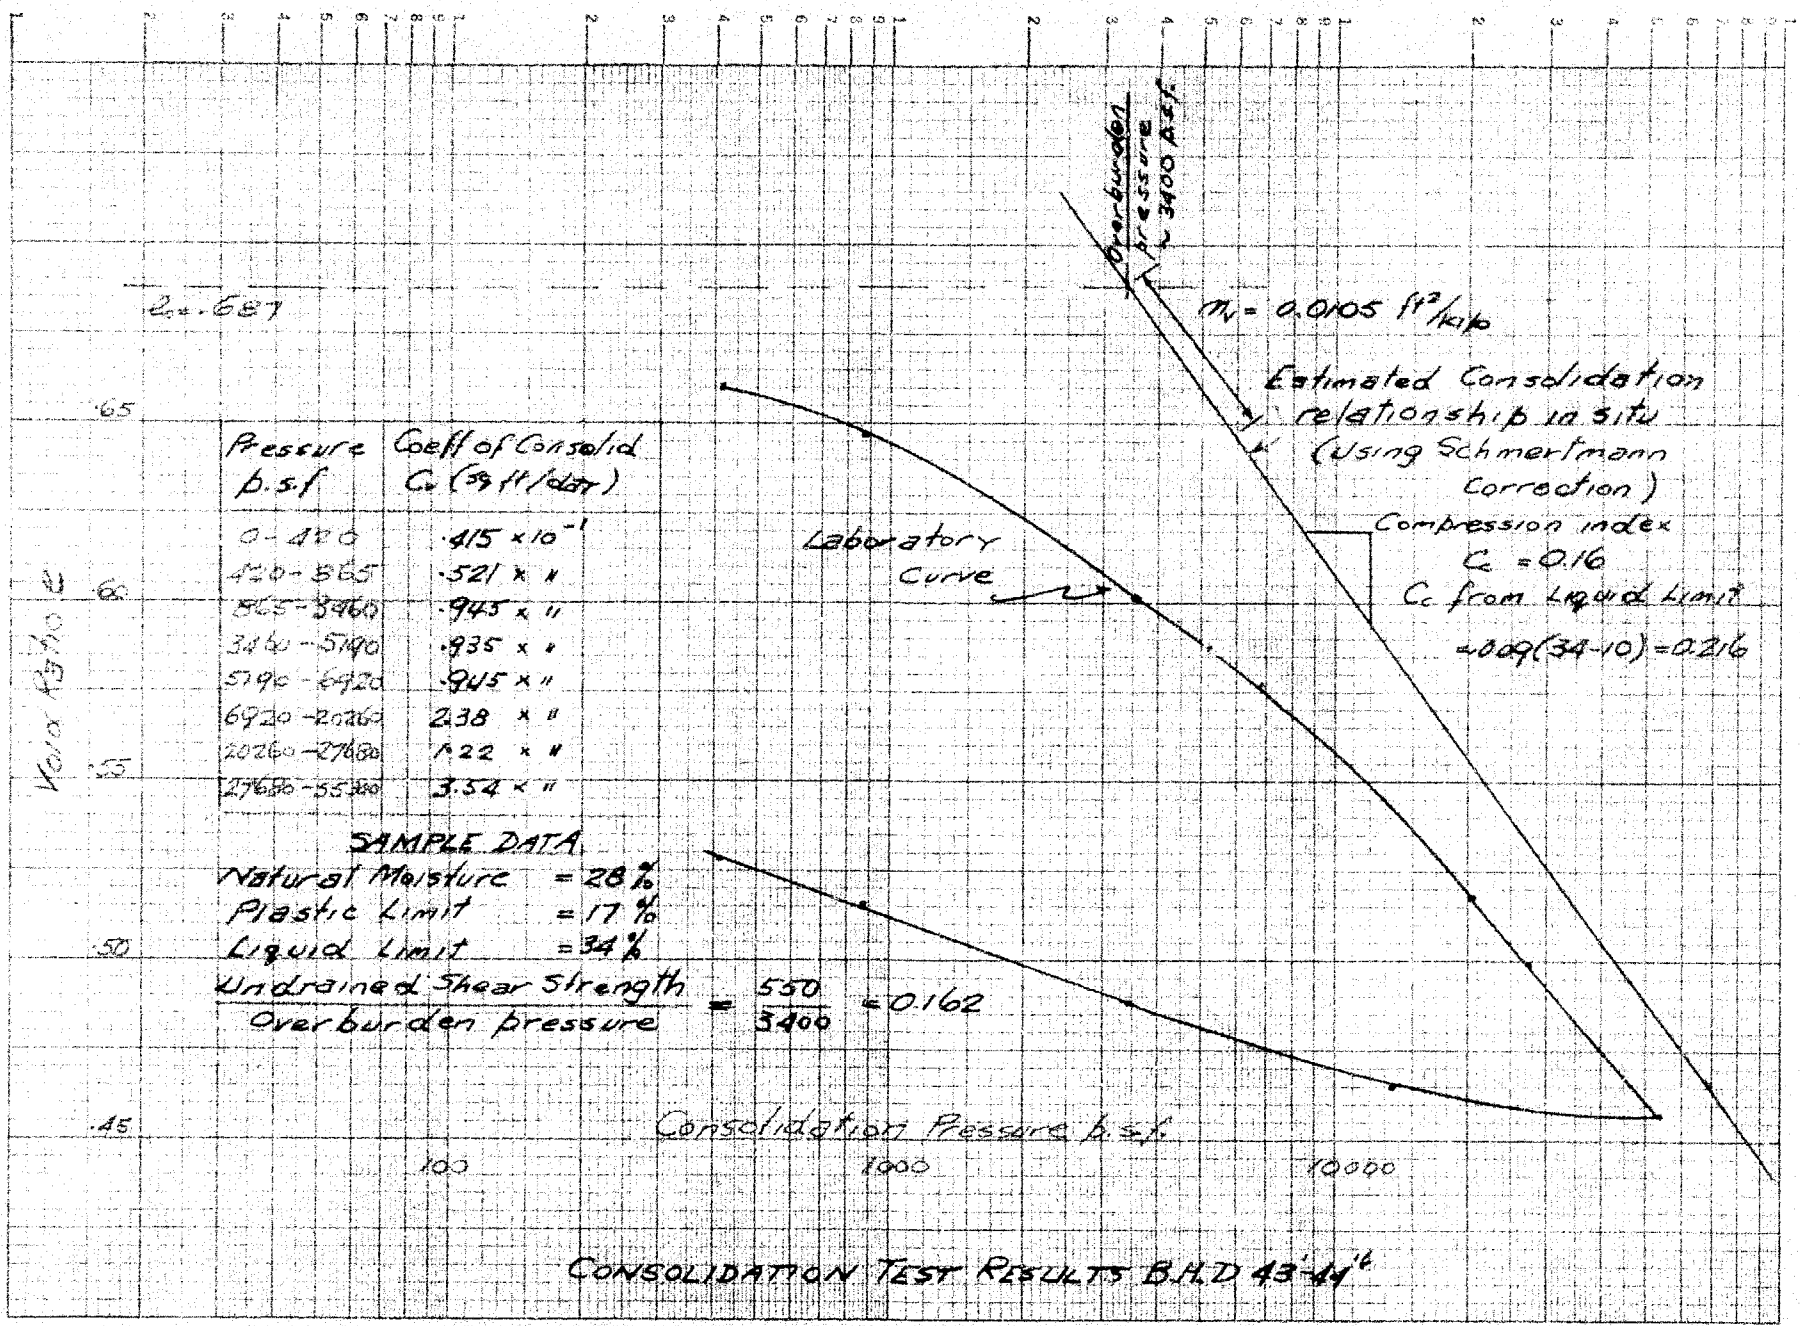 1 2 3 4 5 6 7 8 9 1 2 3 4 5 6 7 8 9 1 2 3 4 5 6 7 8 9 1 2 3 4 5 6 7 8 9 1
Overburden
pressure
~ 3400 p.s.f.
e₀ = .687
mᵥ = 0.0105 ft²/kip
Estimated Consolidation
relationship in situ
(Using Schmertmann
Correction)
Compression index
Cc = 0.16
Cc from Liquid Limit
= .009(34-10) = 0.216
.65
.60
.55
.50
.45
Void Ratio e
Pressure Coeff of Consolid
p.s.f Cᵥ (sq ft/day)
0-420 .415 × 10⁻¹
420-865 .521 × "
865-3460 .945 × "
3460-5190 .935 × "
5190-6920 .945 × "
6920-20260 2.38 × "
20260-27680 1.22 × "
27680-55300 3.54 × "
Laboratory
Curve
SAMPLE DATA
Natural Moisture = 28%
Plastic Limit = 17%
Liquid Limit = 34%
Undrained Shear Strength = 550 = 0.162
Overburden pressure 3400
Consolidation Pressure p.s.f.
100 1000 10000
CONSOLIDATION TEST RESULTS B.H.D 43'-44'6